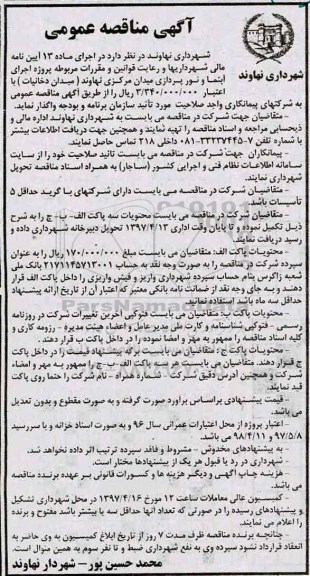 آگهی مناقصه عمومی
شهرداری نهاوند
شهرداری نهاوند در نظر دارد در اجرای ماده ۱۳ آیین نامه
مالی شهرداریها و رعایت قوانین و مقررات مربوطه پروژه اجرای
ابنما و نور پردازی میدان مرکزی نهاوند ( میدان دخانیات ) با
اعتبار ۳/۳۴۰/۰۰۰/۰۰۰ ریال را از طریق آگهی مناقصه عمومی
به شرکتهای پیمانکاری واجد صلاحیت مورد تأئید سازمان برنامه و بودجه واگذار نماید.
- متقاضیان جهت شرکت در مناقصه می بایست به شهرداری نهاوند اداره مالی و
ذیحسابی مراجعه و اسناد مناقصه را تهیه نمایند و همچنین جهت دریافت اطلاعات بیشتر
با شماره تلفن ۷-۳۳۲۳۷۴۴۵-۰۸۱ داخلی ۲۱۸ تماس حاصل نمایند.
- پیمانکاران جهت شرکت در مناقصه می بایست تائید صلاحیت خود را از سایت
سامانه اطلاعات نظام فنی و اجرایی کشور (ساجار) به همراه اسناد مناقصه تحویل
شهرداری نمایند.
- متقاضیان شرکت در مناقصه می بایست دارای شرکتهای با گرید حداقل ۵
تأسیسات باشد.
- متقاضیان شرکت در مناقصه می بایست محتویات سه پاکت الف - ب - ج را به شرح
ذیل تکمیل نموده و تا پایان وقت اداری ۱۳۹۷/۴/۱۳ تحویل دبیرخانه شهرداری داده و
رسید دریافت نمایند.
- محتویات پاکت الف: متقاضیان می بایست مبلغ ۱۷۰/۰۰۰/۰۰۰ ریال را به عنوان
سپرده شرکت در مناقصه را به صورت وجه نقد به حساب ۲۱۷۱۱۴۵۷۱۳۰۰۱ بانک ملی
شعبه زاگرس بنام حساب سپرده شهرداری واریز و فیش واریزی را داخل پاکت الف قرار
دهند و به جای وجه نقد از ضمانت نامه بانکی معتبر که اعتبار آن از تاریخ ارائه پیشنهاد
حداقل سه ماه باشد استفاده نمایند.
- محتویات پاکت ب: متقاضیان می بایست فتوکپی آخرین تغییرات شرکت در روزنامه
رسمی - فتوکپی شناسنامه و کارت ملی مدیر عامل و اعضاء هیئت مدیره - رزومه کاری و
کلیه اسناد مناقصه را ممهور به مهر و امضا نموده را در داخل پاکت ب قرار دهند .
- محتویات پاکت ج : متقاضیان می بایست برگه پیشنهاد قیمت را در داخل پاکت
ج قرار دهند. متقاضیان می بایست هر سه پاکت الف-ب-ج را ممهور به مهر و امضاء
شرکت و همچنین آدرس دقیق شرکت - شماره همراه - نام شرکت را حتما روی پاکت
قید نمایند.
- قیمت پیشنهادی براساس برآورد صورت گرفته و به صورت مقطوع و بدون تعدیل
می باشد.
- اعتبار پروژه از محل اعتبارات عمرانی سال ۹۶ و به صورت اسناد خزانه و با سررسید
۹۷/۵/۸ و ۹۸/۴/۱۱ می باشد.
- به پیشنهادهای مخدوش - مشروط و فاقد سپرده ترتیب اثر داده نخواهد شد.
- شهرداری در رد یا قبول هر یک از پیشنهادها مختار است.
- هزینه چاپ آگهی و دیگر هزینه ها و کسورات قانونی بر عهده برنده مناقصه
می باشد.
- کمیسیون عالی معاملات ساعت ۱۲ مورخ ۱۳۹۷/۴/۱۶ در محل شهرداری تشکیل
و پیشنهادهای رسیده را در صورتی که تعداد آنها حداقل سه یا بیشتر باشد مفتوح و برنده
را اعلام می نمایند.
- چنانچه برنده مناقصه ظرف مدت ۷ روز از تاریخ ابلاغ کمیسیون به وی حاضر به
انعقاد قرارداد نشود سپرده وی به نفع شهرداری ضبط و تا نفر سوم به همین منوال است.
محمد حسین پور - شهردار نهاوند